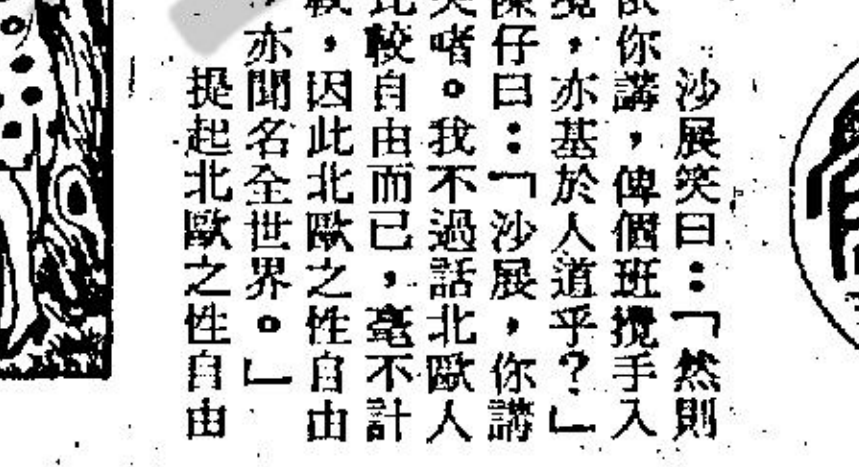 沙展笑曰：「然則
依你講，俾個班攪手入
境，亦基於人道乎？」
陳仔曰：「沙展，你講
笑啫。我不過話北歐人
比較自由而已，毫不計
較，因此北歐之性自由
，亦聞名全世界。」
提起北歐之性自由